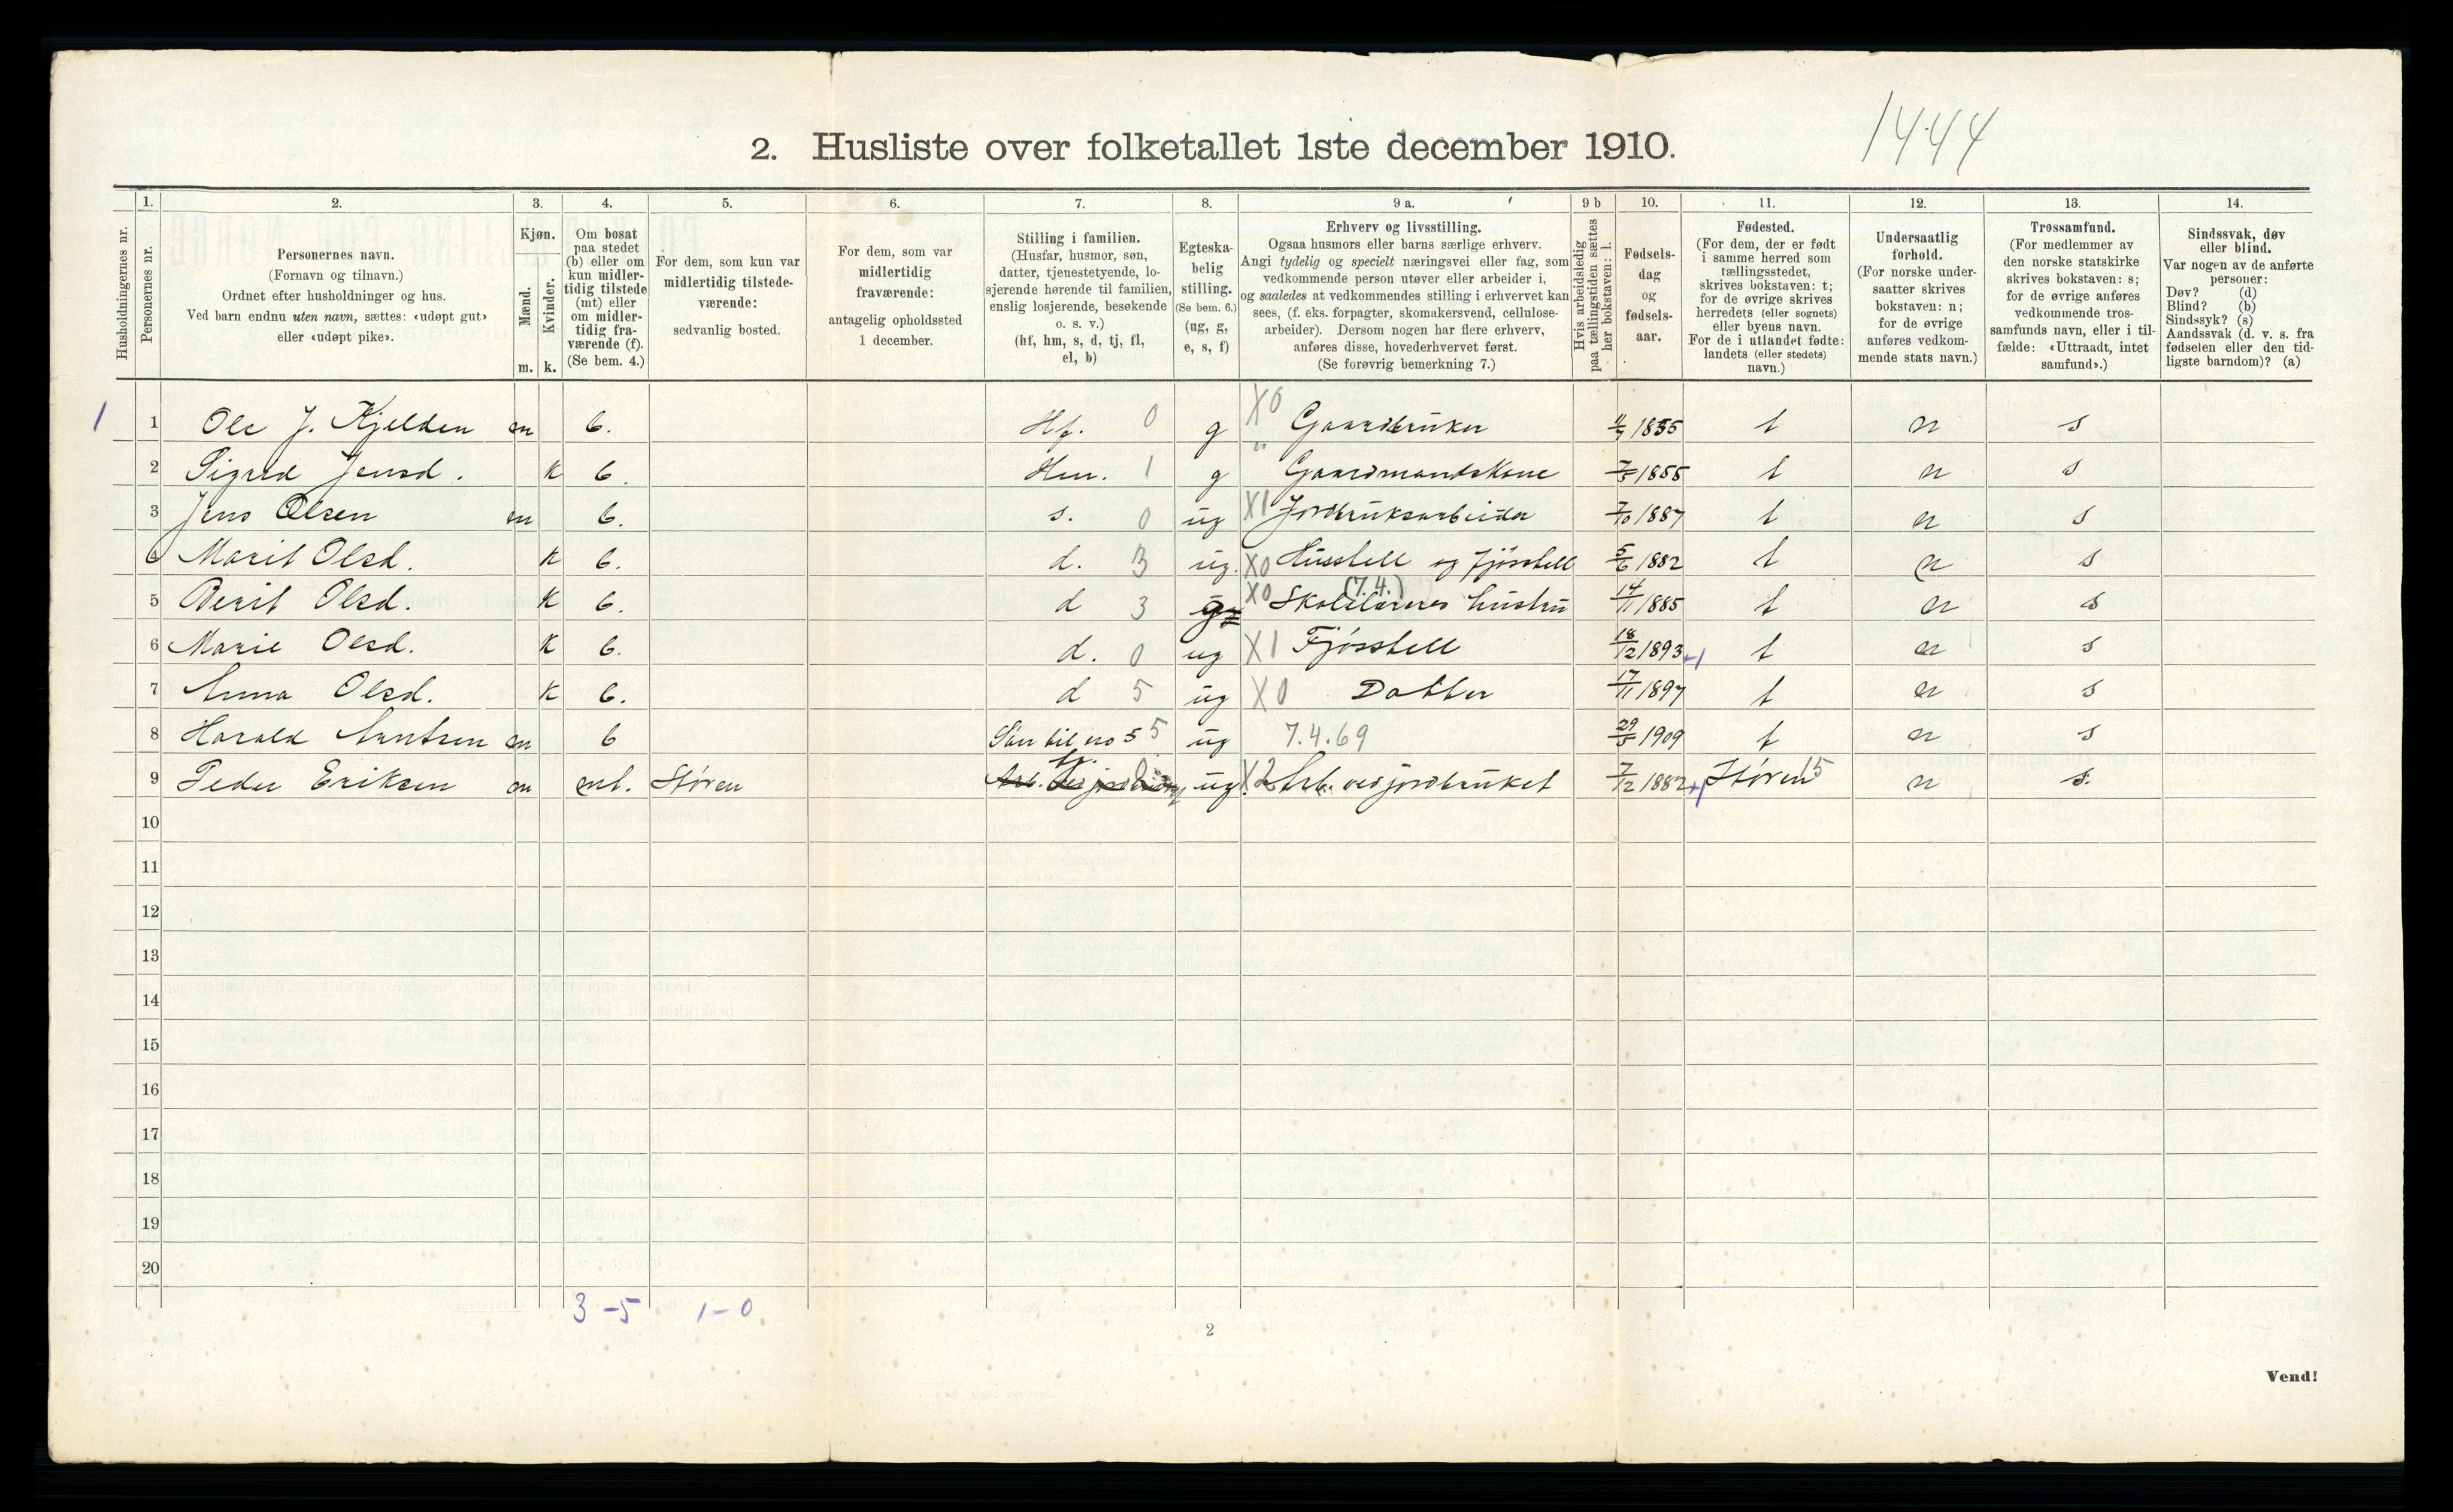 1444
2. Husliste over folketallet 1ste december 1910.
1. 2. 3. 4. 5. 6. 7. 8. 9 a. 9 b 10. 11. 12. 13. 14.
Husholdningernes nr.
Personernes nr.
Personernes navn.
(Fornavn og tilnavn.)
Ordnet efter husholdninger og hus.
Ved barn endnu uten navn, sættes: «udøpt gut»
eller «udøpt pike».
Kjøn.
Mænd.
Kvinder.
m. k.
Om bosat
paa stedet
(b) eller om
kun midler-
tidig tilstede
(mt) eller
om midler-
tidig fra-
værende (f).
(Se bem. 4.)
For dem, som kun var
midlertidig tilstede-
værende:
sedvanlig bosted.
For dem, som var
midlertidig
fraværende:
antagelig opholdssted
1 december.
Stilling i familien.
(Husfar, husmor, søn,
datter, tjenestetyende, lo-
sjerende hørende til familien,
enslig losjerende, besøkende
o. s. v.)
(hf, hm, s, d, tj, fl,
el, b)
Egteska-
belig
stilling.
(Se bem. 6.)
(ug, g,
e, s, f)
Erhverv og livsstilling.
Ogsaa husmors eller barns særlige erhverv.
Angi tydelig og specielt næringsvei eller fag, som
vedkommende person utøver eller arbeider i,
og saaledes at vedkommendes stilling i erhvervet kan
sees, (f. eks. forpagter, skomakersvend, cellulose-
arbeider). Dersom nogen har flere erhverv,
anføres disse, hovederhvervet først.
(Se forøvrig bemerkning 7.)
Hvis arbeidsledig
paa tællingstiden sættes
her bokstaven: l.
Fødsels-
dag
og
fødsels-
aar.
Fødested.
(For dem, der er født
i samme herred som
tællingsstedet,
skrives bokstaven: t;
for de øvrige skrives
herredets (eller sognets)
eller byens navn.
For de i utlandet fødte:
landets (eller stedets)
navn.)
Undersaatlig
forhold.
(For norske under-
saatter skrives
bokstaven: n;
for de øvrige
anføres vedkom-
mende stats navn.)
Trossamfund.
(For medlemmer av
den norske statskirke
skrives bokstaven: s;
for de øvrige anføres
vedkommende tros-
samfunds navn, eller i til-
fælde: «Uttraadt, intet
samfund».)
Sindssvak, døv
eller blind.
Var nogen av de anførte
personer:
Døv? (d)
Blind? (b)
Sindssyk? (s)
Aandssvak (d. v. s. fra
fødselen eller den tid-
ligste barndom)? (a)
1 1 Ole J. Kjelden m b. Hf. 0 g X0 Gaardbruker 1855 t n s
2 Sigrid Jensd. k b. Hm. 1 g " Gaardmandskone 7/5 1855 t n s
3 Jens Olsen m b. s. 0 ug X1 Jordbruksarbeider 7/10 1887 t n s
4 Marit Olsd. k b. d. 3 ug. X0 Husstell og Fjösstell 5/6 1882 t n s
5 Berit Olsd. k b. d 3 g X0 Skolelæreres hustru (7.4.) 14/11 1885 t n s
6 Marie Olsd. k b. d. 0 ug X1 Fjösstell 18/12 1893 t n s
7 Anna Olsd. k b. d 5 ug X0 Datter 17/11 1897 t n s
8 Harald Arntsen m b Sön til no 5 5 ug 7.4.69 29/5 1909 t n s
9 Peder Eriksen m mt. Stören tj. ug X2 Arb. ved jordbruket 7/12 1882 Stören 15 n s.
10
11
12
13
14
15
16
17
18
19
20
3-5 1-0
2
Vend!